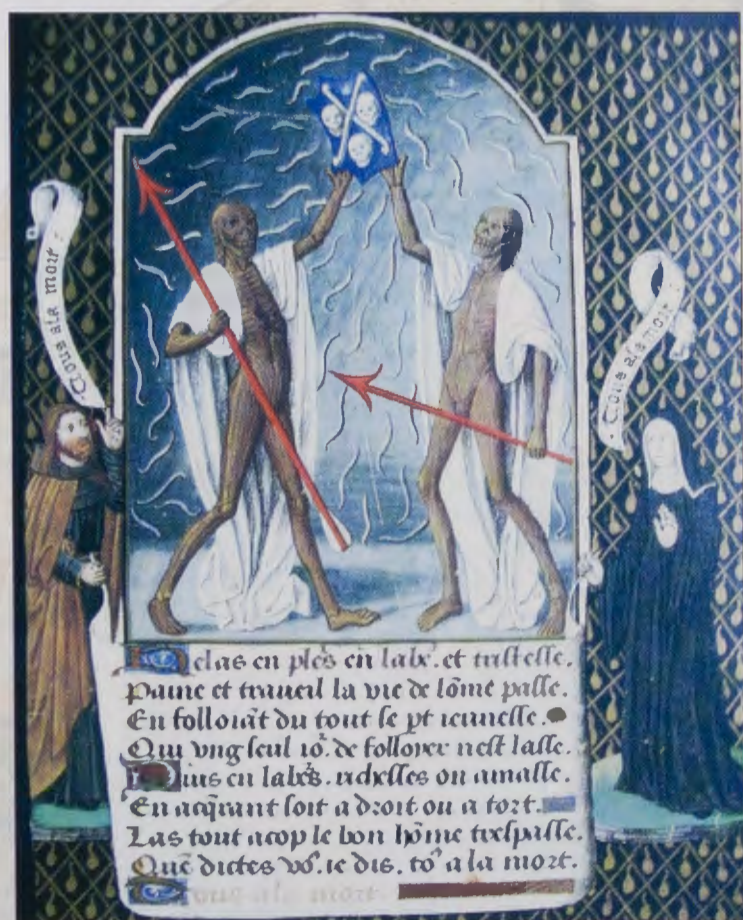 Tous a la mort :
Tous a la mort :
Helas en ples en labe². et tristesse.
Paine et traueil la vie de lōme passe.
En folloiāt du tout se pt ieunesse.
Qui vng seul io². de folloyer nest lasse.
Puis en labe²s. richesses on amasse.
En acq̄rant soit a droit ou a tort.
Las tout acop le bon hōme trespasse.
Quē dictes vo⁹. ie dis. to⁹ a la mort.
Tous a la mort.